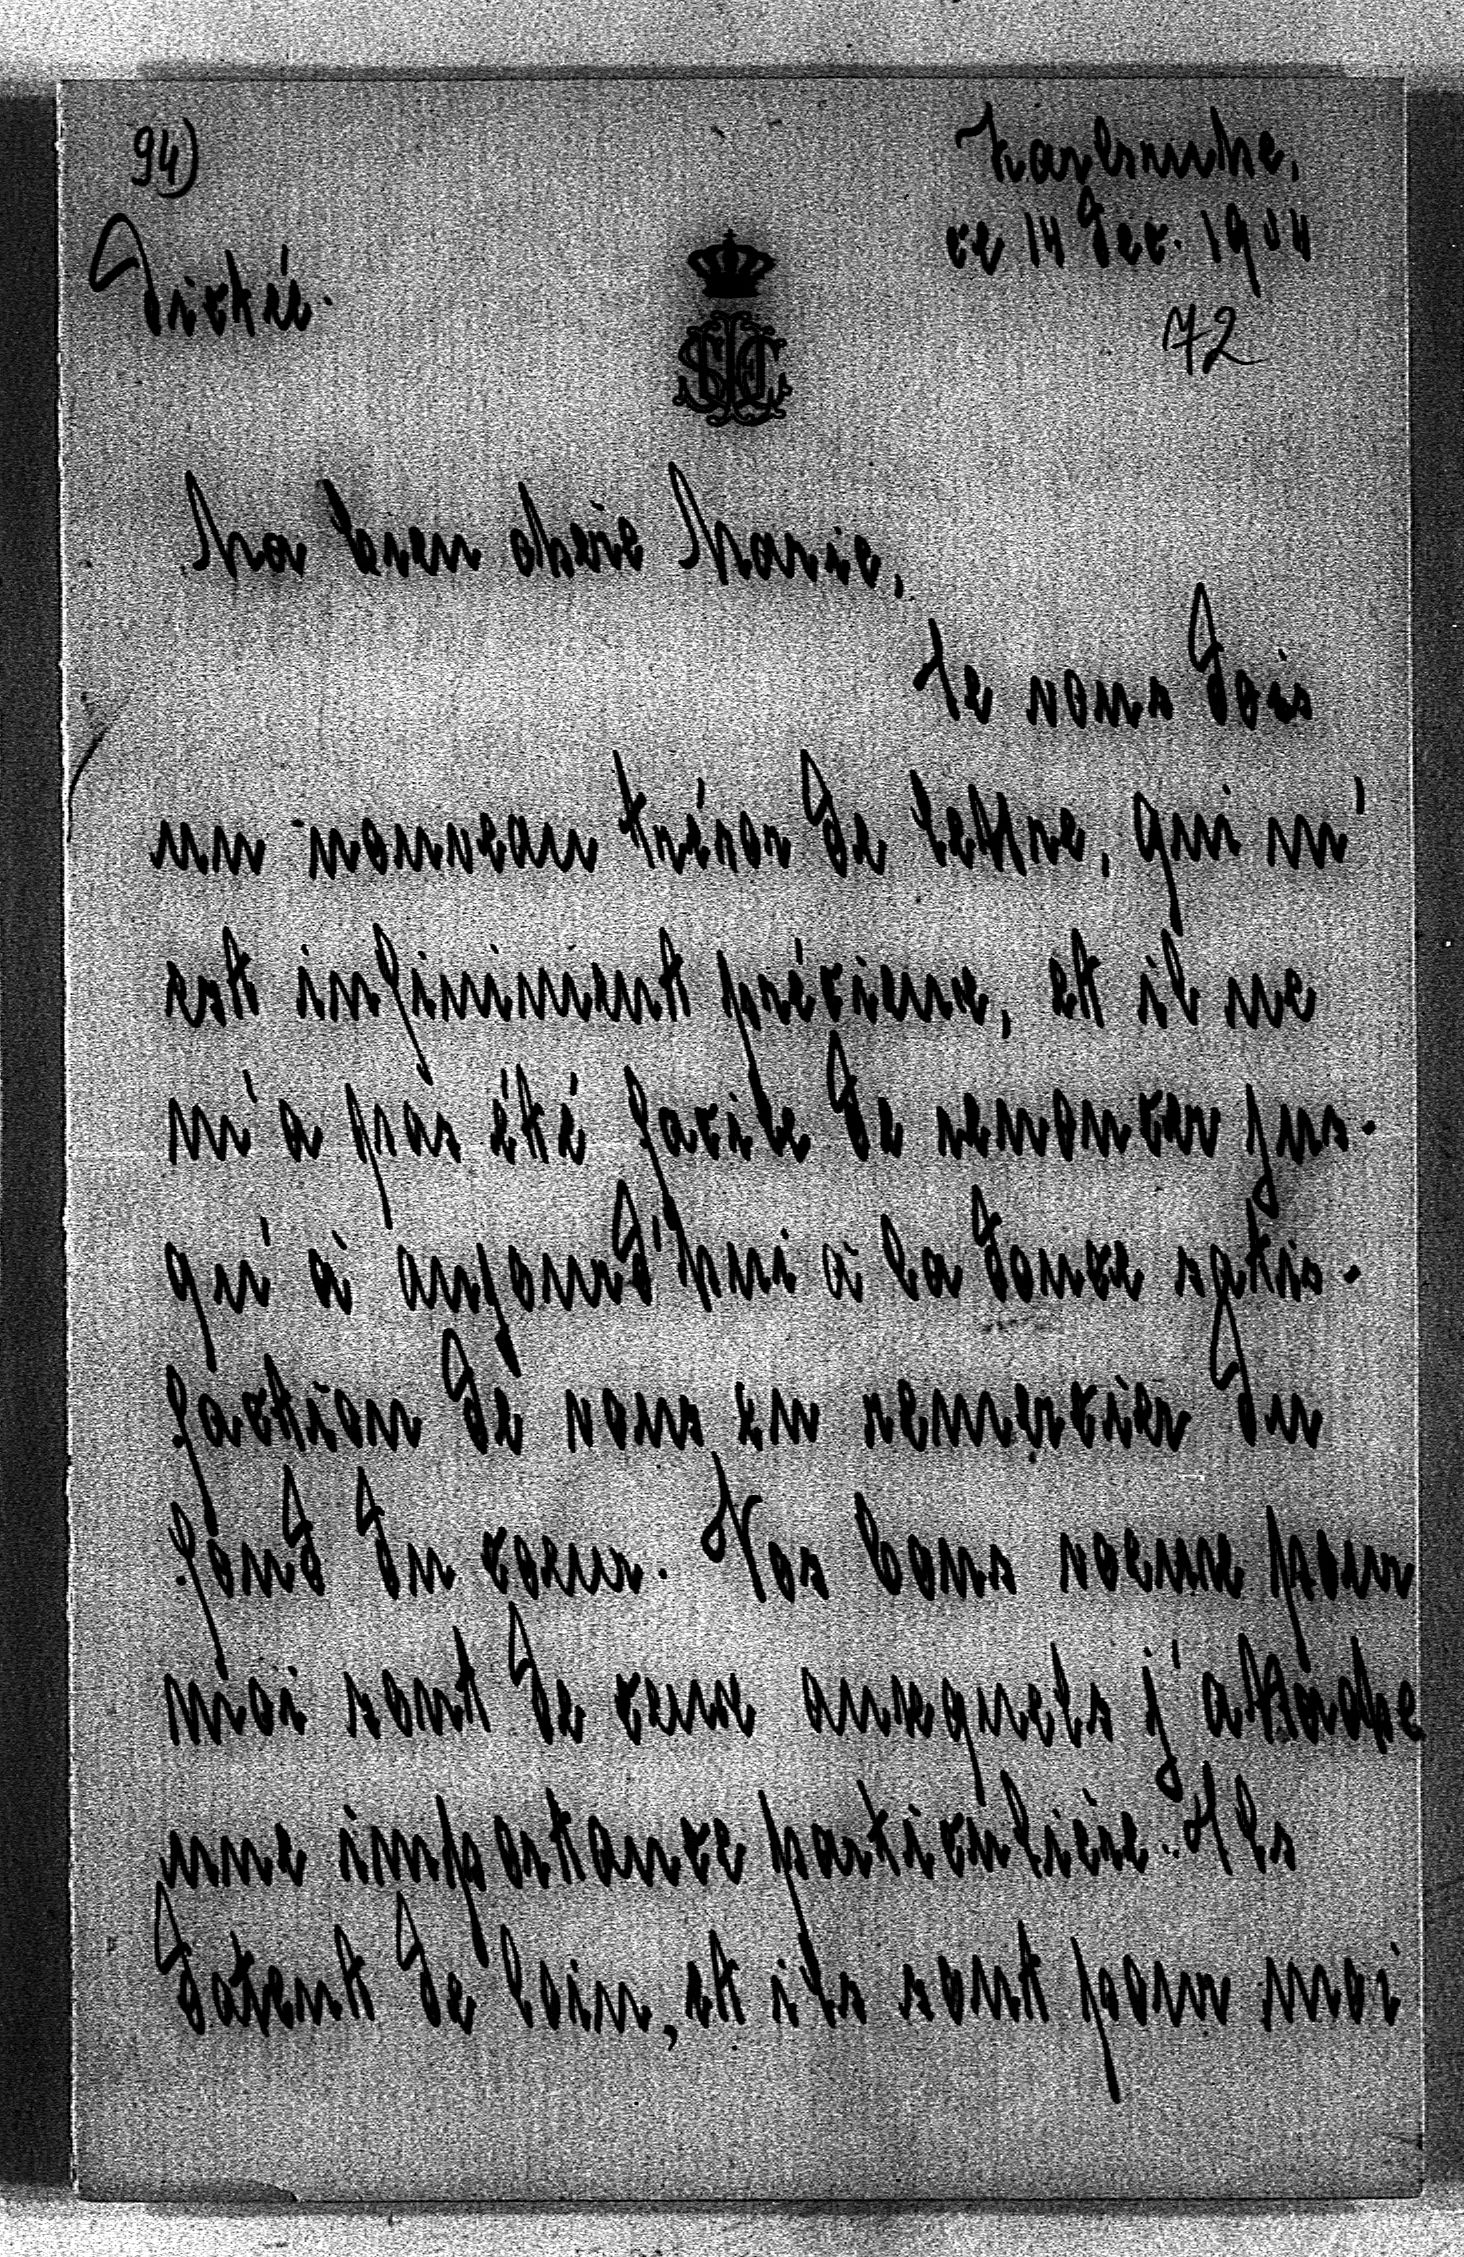 94)
Karlsruhe,
ce 14 Dec. 1904
Dictée.
72
Ma bien chère Marie,
Je vous dois
un nouveau trésor de lettre, qui m'
est infiniment précieux, et il ne
m'a pas été facile de renoncer jus-
qu'à aujourd'hui à la douce satis-
faction de vous en remercier du
fond du coeur. Vos bons voeux pour
moi sont de ceux auxquels j'attache
une importance particulière. Ils
datent de loin, et ils sont pour moi